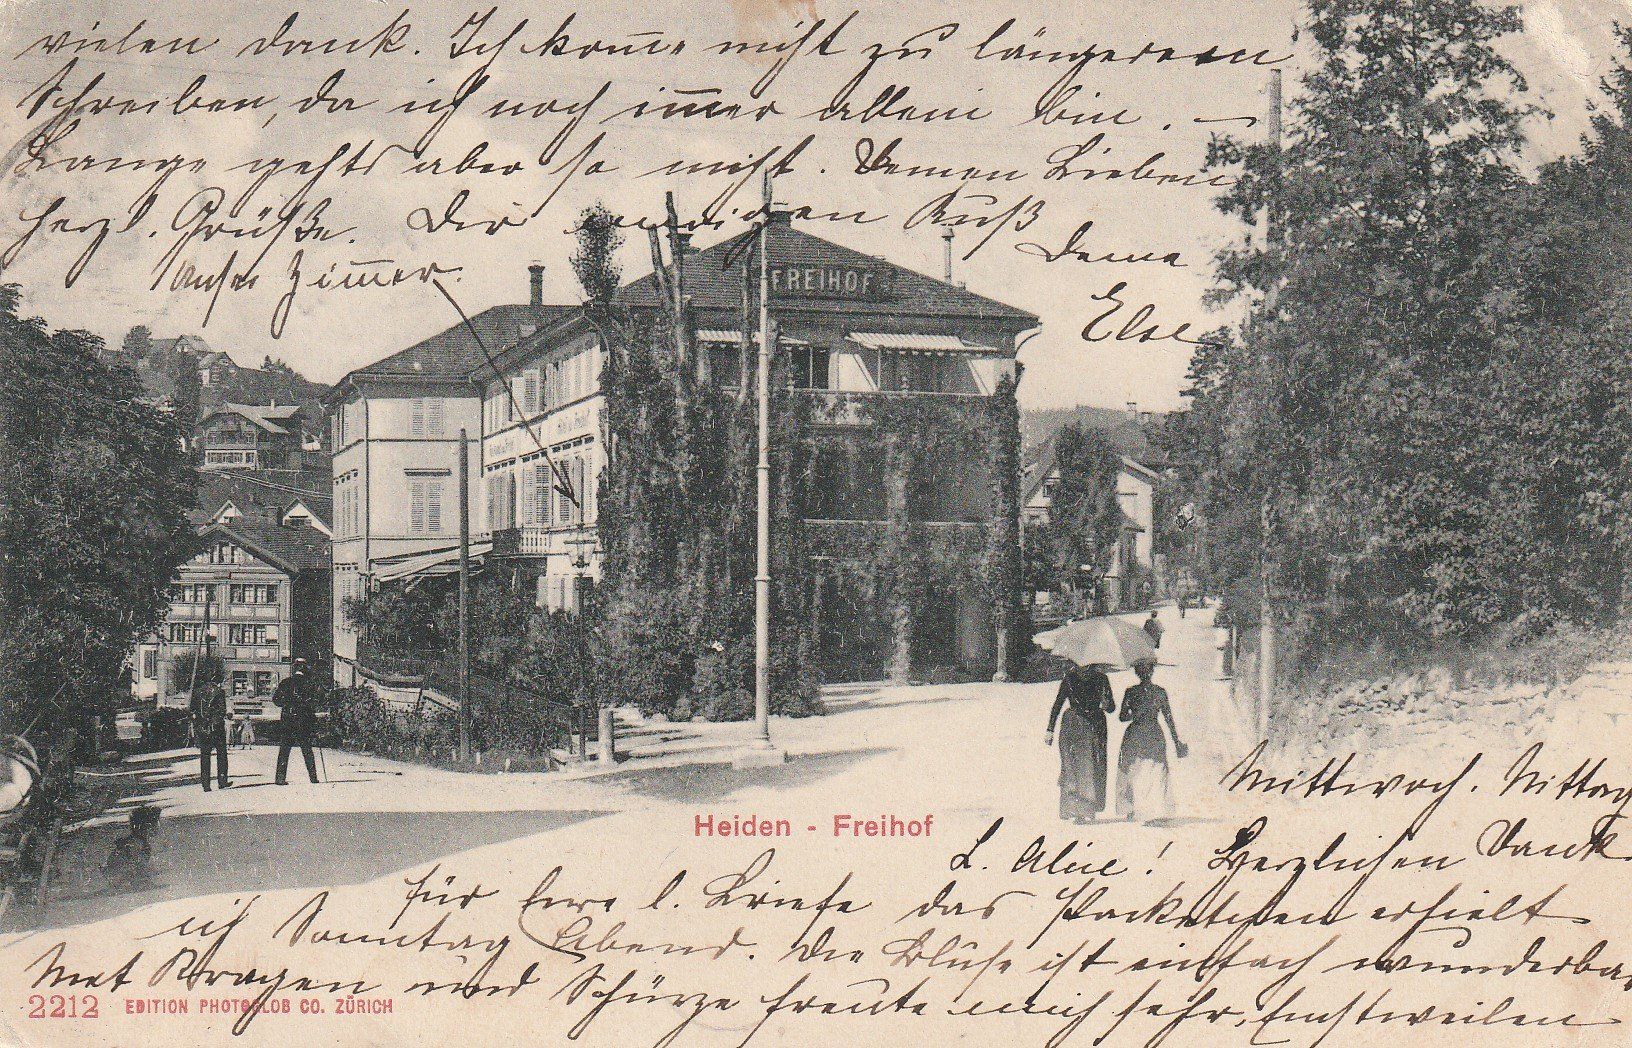 Mittwoch. Mittag
L. Alice! Herzlichen Dank
für Eure l. Briefe das Packetchen erhielt
ich Sonntag Abend. Die Bluse ist einfach wunderbar
Met Kragen und Schürze freute mich sehr, Einstweilen
vielen Dank. Ich kom̅e nicht zu längerem
Schreiben, da ich noch im̅er allein bin. —
Lange gehts aber so nicht. Deinen Lieben
herzl. Grüße. Dir Kuß
Deine
Else
Unser Zim̅er.
FREIHOF
Heiden - Freihof
2212 EDITION PHOTOGLOB CO. ZÜRICH